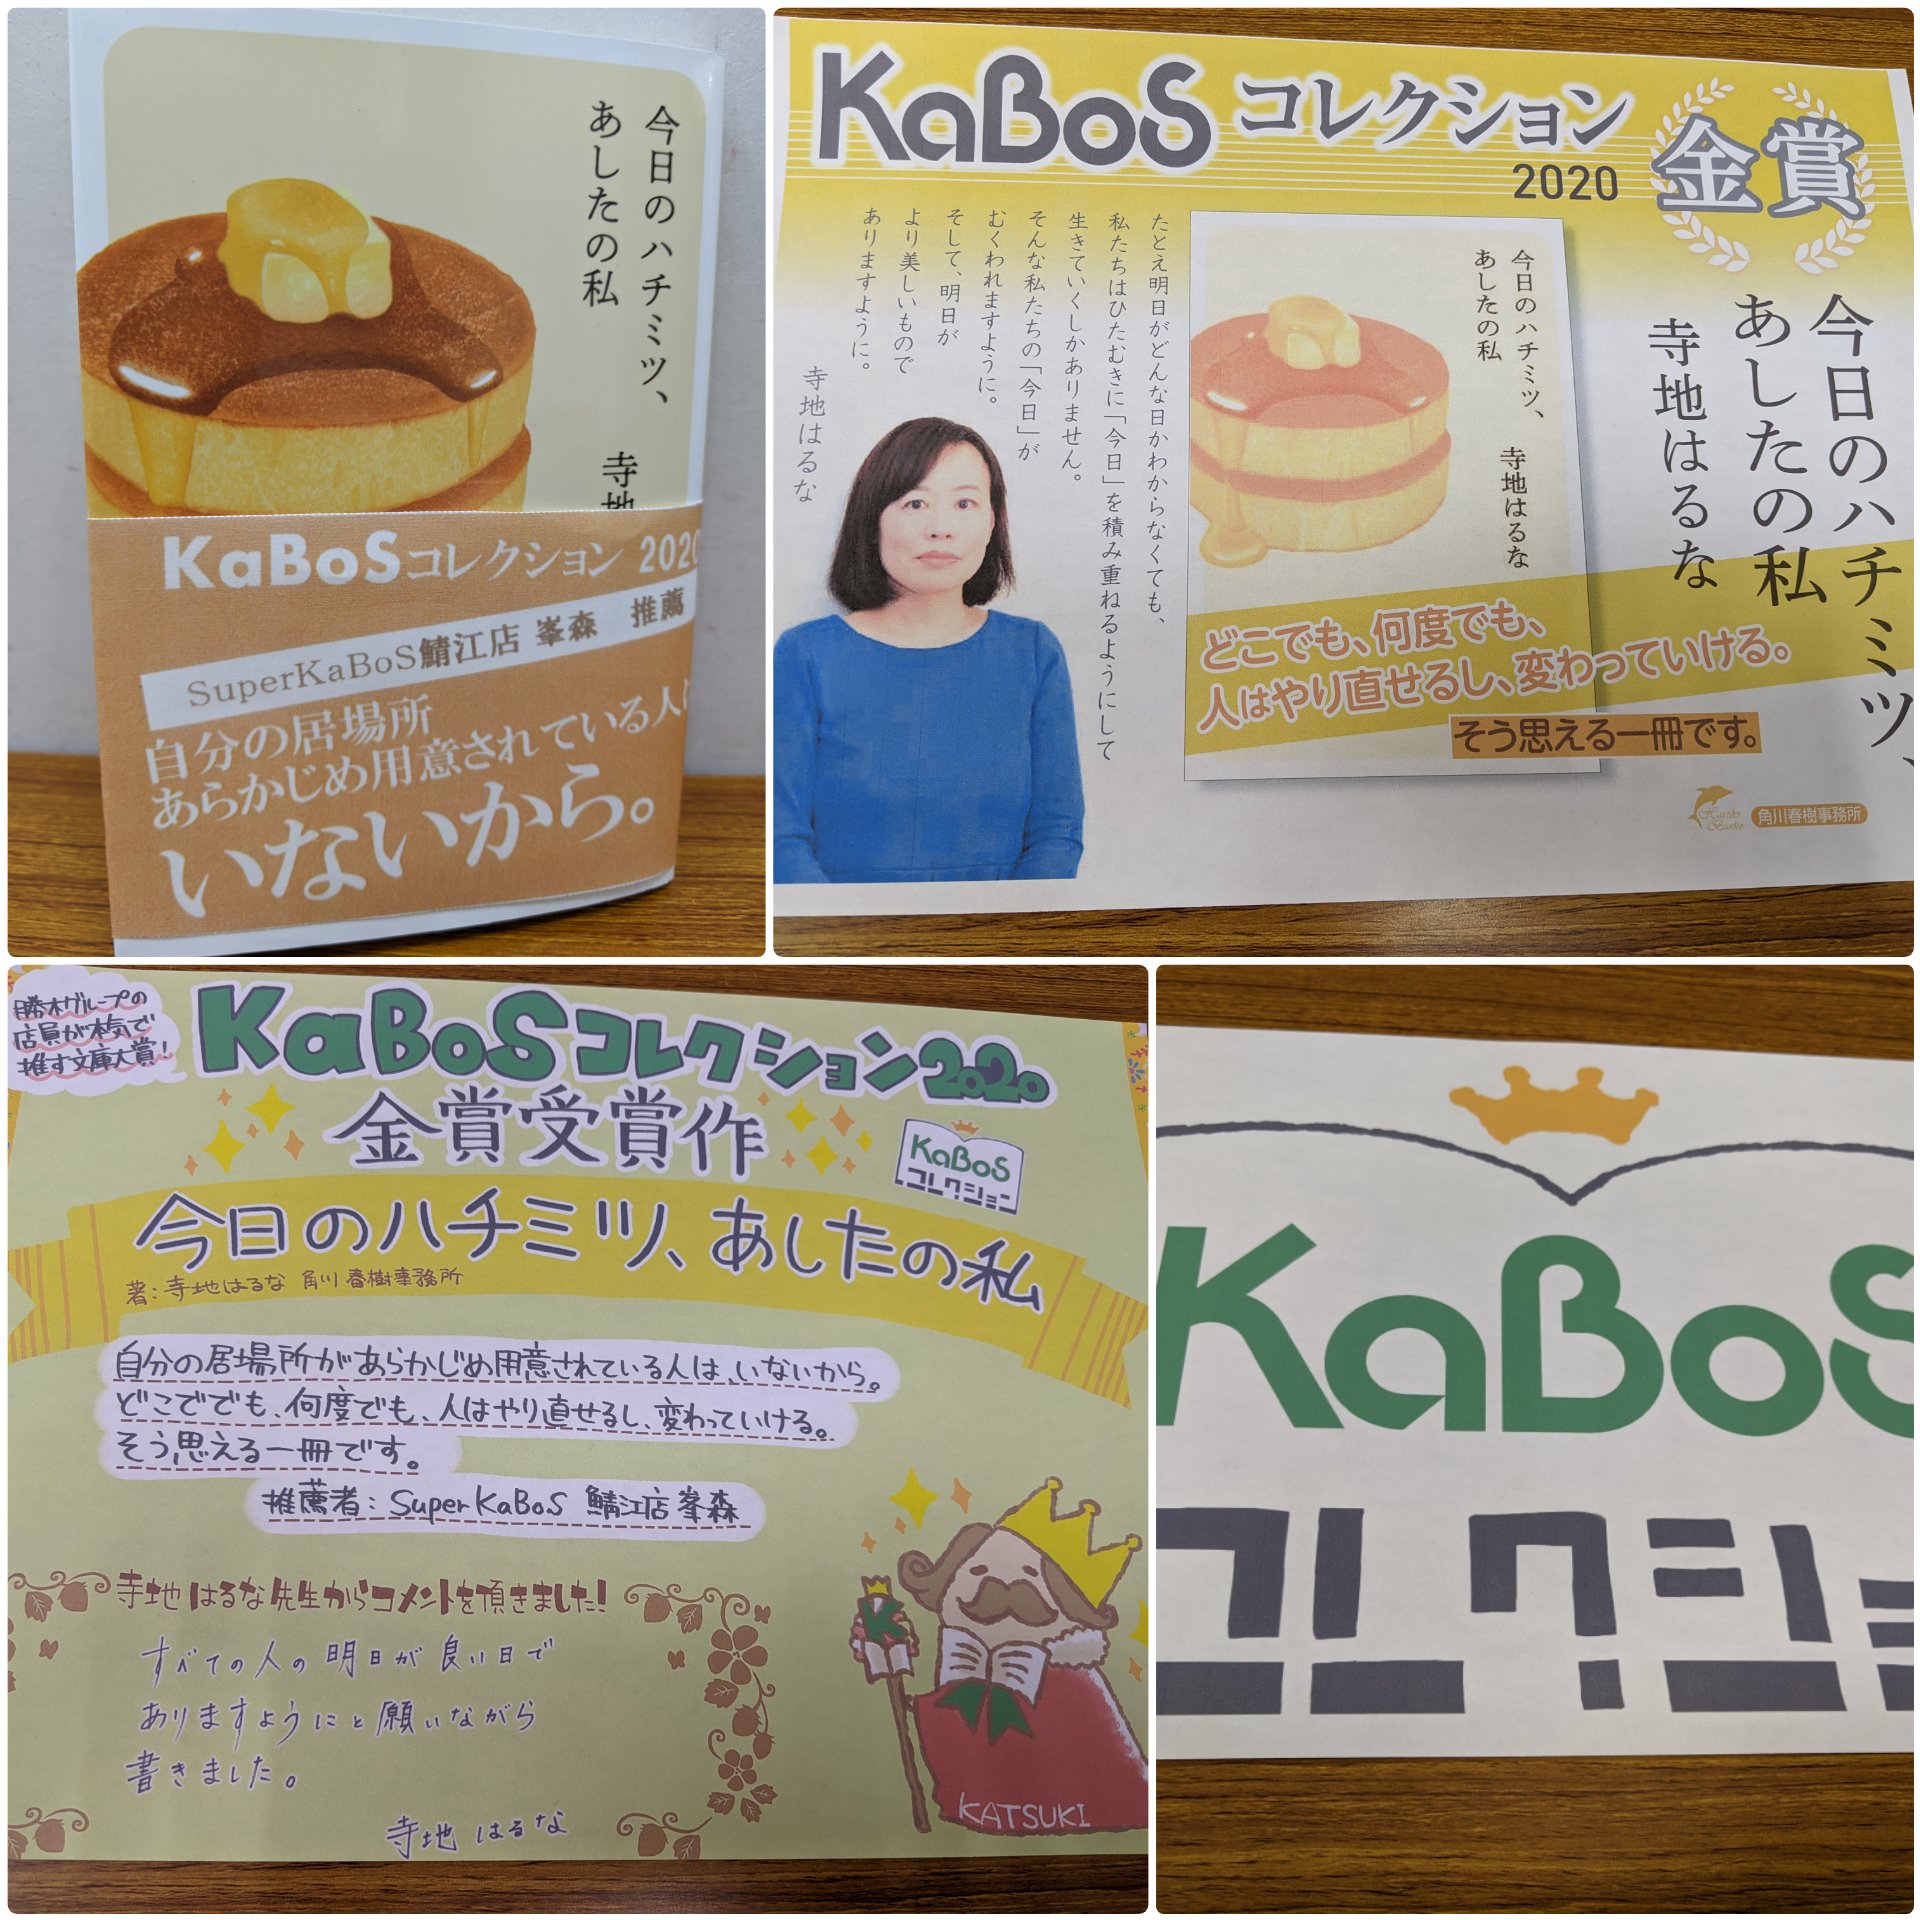 今日のハチミツ、
あしたの私
寺地
KaBoSコレクション 2020
SuperKaBoS鯖江店 峯森 推薦
自分の居場所
あらかじめ用意されている人は
いないから。
KaBoSコレクション
2020
金賞
今日のハチミツ、
あしたの私
寺地はるな
今日のハチミツ、
あしたの私
寺地はるな
たとえ明日がどんな日かわからなくても、
私たちはひたむきに「今日」を積み重ねるようにして
生きていくしかありません。
そんな私たちの「今日」が
むくわれますように。
そして、明日が
より美しいもので
ありますように。
寺地はるな
どこでも、何度でも、
人はやり直せるし、変わっていける。
そう思える一冊です。
Haruki
Bunko
角川春樹事務所
勝木グループの
店員が本気で
推す文庫大賞!
KaBoSコレクション2020
金賞受賞作
KaBoS
コレクション
今日のハチミツ、あしたの私
著:寺地はるな 角川春樹事務所
自分の居場所があらかじめ用意されている人は、いないから。
どこででも、何度でも、人はやり直せるし、変わっていける。
そう思える一冊です。
推薦者:SuperKaBoS 鯖江店 峯森
寺地はるな先生からコメントを頂きました!
すべての人の明日が良い日で
ありますようにと願いながら
書きました。
寺地はるな
K
KATSUKI
KaBoS
コレクショ